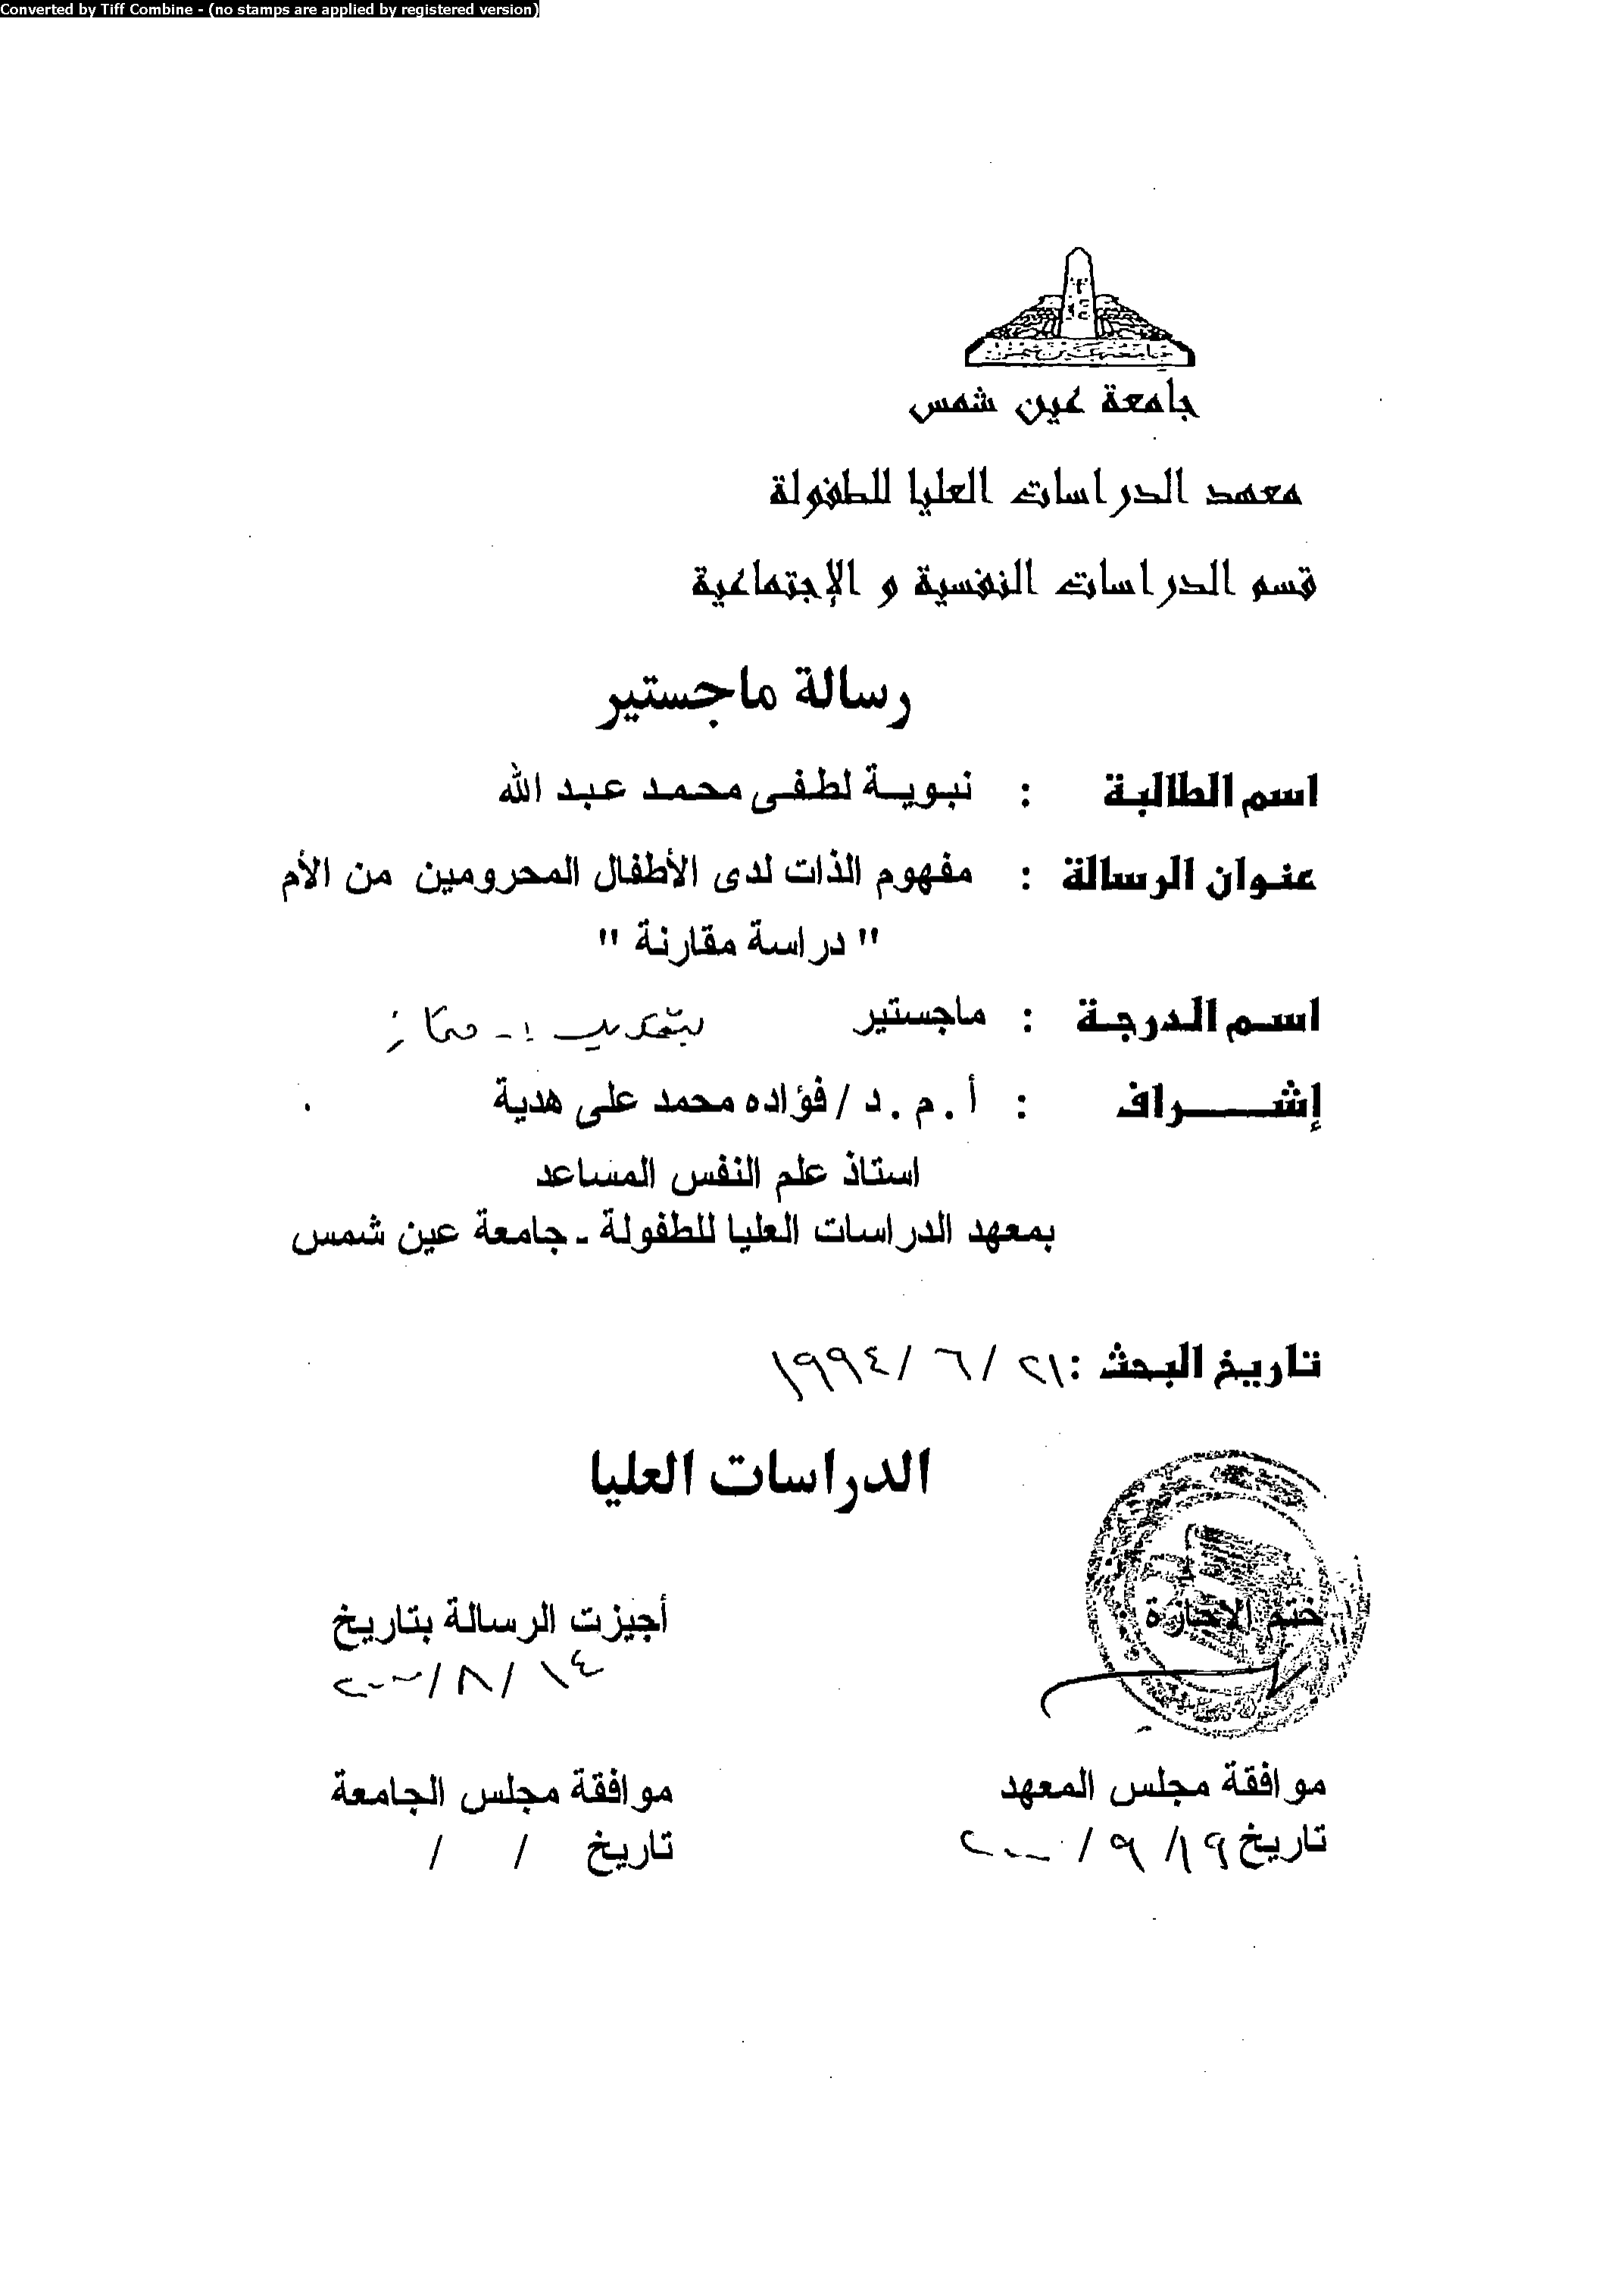 Converted by Tiff Combine - (no stamps are applied by registered version)
جامعة عين شمس
معهد الدراسات العليا للطفولة
قسم الدراسات النفسية و الإجتماعية
رسالة ماجستير
اسم الطالبة : نبوية لطفى محمد عبد الله
عنوان الرسالة : مفهوم الذات لدى الأطفال المحرومين من الأم
" دراسة مقارنة "
اسم الدرجة : ماجستير بتقدير
إشـــراف : أ . م . د / فؤاده محمد على هدية
استاذ علم النفس المساعد
بمعهد الدراسات العليا للطفولة - جامعة عين شمس
تاريخ البحث : ٢١ / ٦ / ١٩٩٤
الدراسات العليا
ختم الإجازة :
أجيزت الرسالة بتاريخ
١٤ / ٨ / ٢٠٠٠
موافقة مجلس المعهد
تاريخ ١٩ / ٩ / ٢٠٠٠
موافقة مجلس الجامعة
تاريخ / /